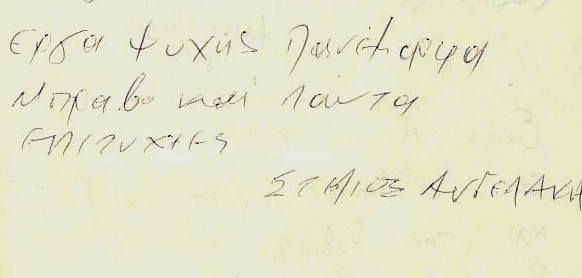 Εργα Ψυχης Πανέμορφα
Μπραβο και παντα
ΕΠΙΤΥΧΙΕΣ
ΣΤΕΛΙΟΣ ΑΓΓΕΛΑΚΗ